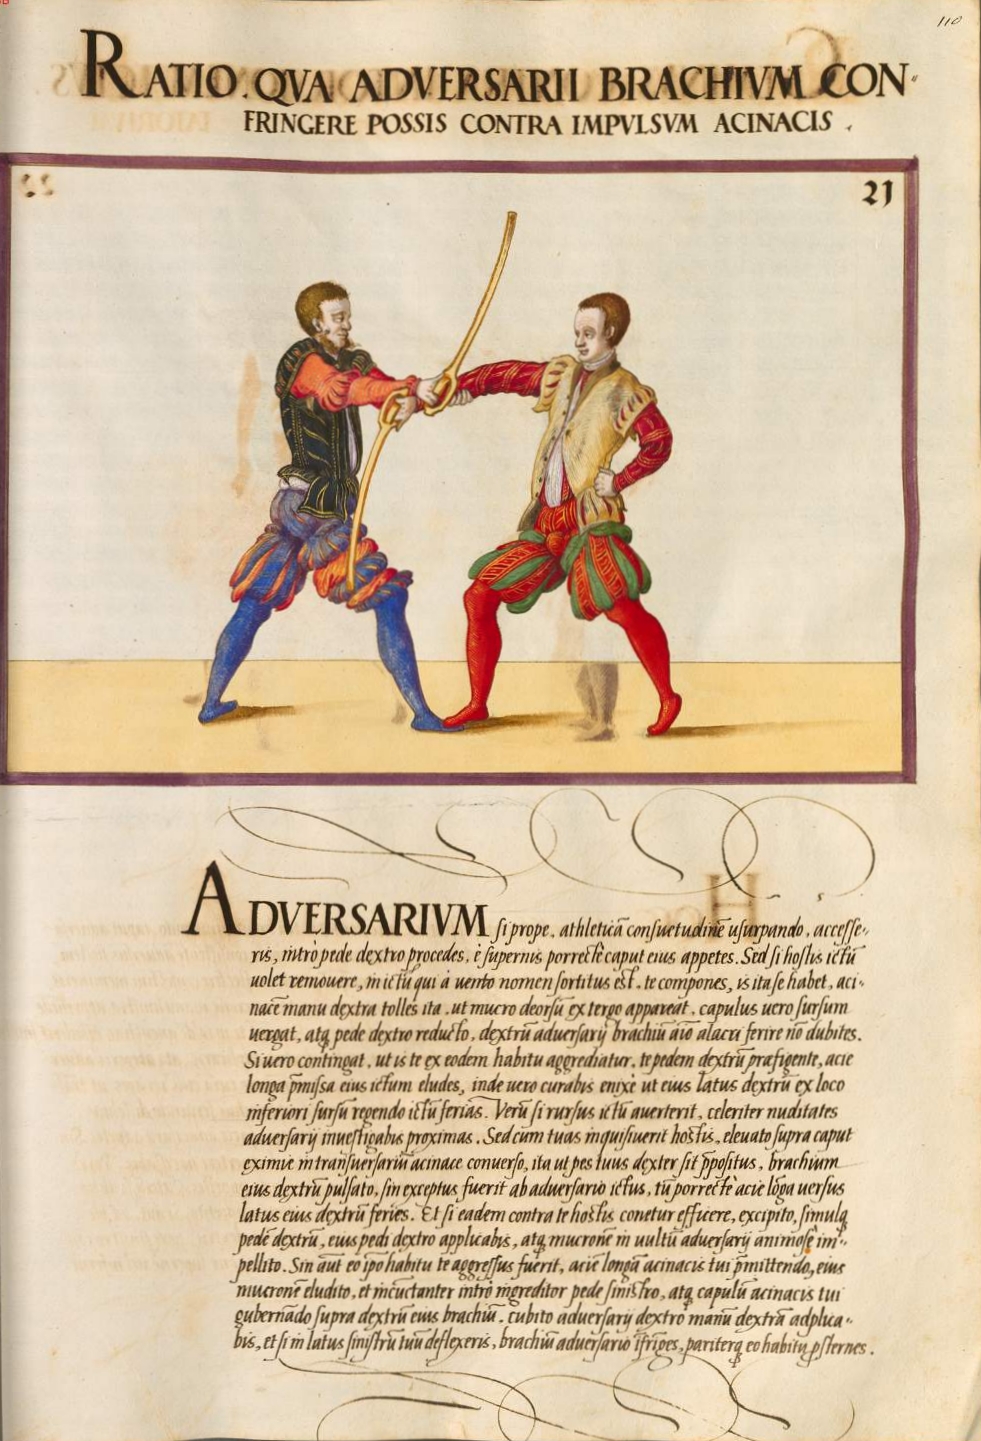 110
RATIO. QVA ADVERSARII BRACHIVM CON-
FRINGERE POSSIS CONTRA IMPVLSVM ACINACIS.
21
ADVERSARIVM si prope, athleticā consuetudinē usurpando, accesse-
ris, intrò pede dextro procedes, è supernis porrectè caput eius appetes. Sed si hostis ictū
uolet remouere, in ictū qui à uento nomen sortitus est, te compones, is ita se habet, aci-
nacē manu dextra tolles ita, ut mucro deorsū ex tergo appareat, capulus uero sursum
uergat, atq̨ pede dextro reducto, dextrū adversarij brachiū aīo alacri ferire nō dubites.
Si uero contingat, ut is te ex eodem habitu aggrediatur, te pedem dextrū præfigente, acie
longa p̄missa eius ictum eludes, inde uero curabis enixe ut eius latus dextrū ex loco
inferiori sursū regendo ictū ferias. Verū si rursus ictū auerterit, celeriter nuditates
aduersarij inuestigabis proximas. Sed cum tuas inquisiuerit hostis, eleuato supra caput
eximie in transuersariū acinace conuerso, ita ut pes tuus dexter sit p̄positus, brachium
eius dextrū pulsato, sin exceptus fuerit ab aduersario ictus, tū porrectè acie lōga uersus
latus eius dextrū feries. Et si eadem contra te hostis conetur efficere, excipito, simulq̨
pedē dextrū, eius pedi dextro applicabis, atq̨ mucronē in uultū aduersarij animosè im-
pellito. Sin aūt eo ipō habitu te aggressus fuerit, aciē longā acinacis tui p̄mittendo, eius
mucronē eludito, et incūctanter intrò ingreditor pede sinistro, atq̨ capulū acinacis tui
gubernādo supra dextrū eius brachiū, cubito aduersarij dextro manū dextrā adplica-
bis, et si in latus sinistrū tuū deflexeris, brachiū aduersario īfrīges, pariterq̨ eo habitu p̱sternes.